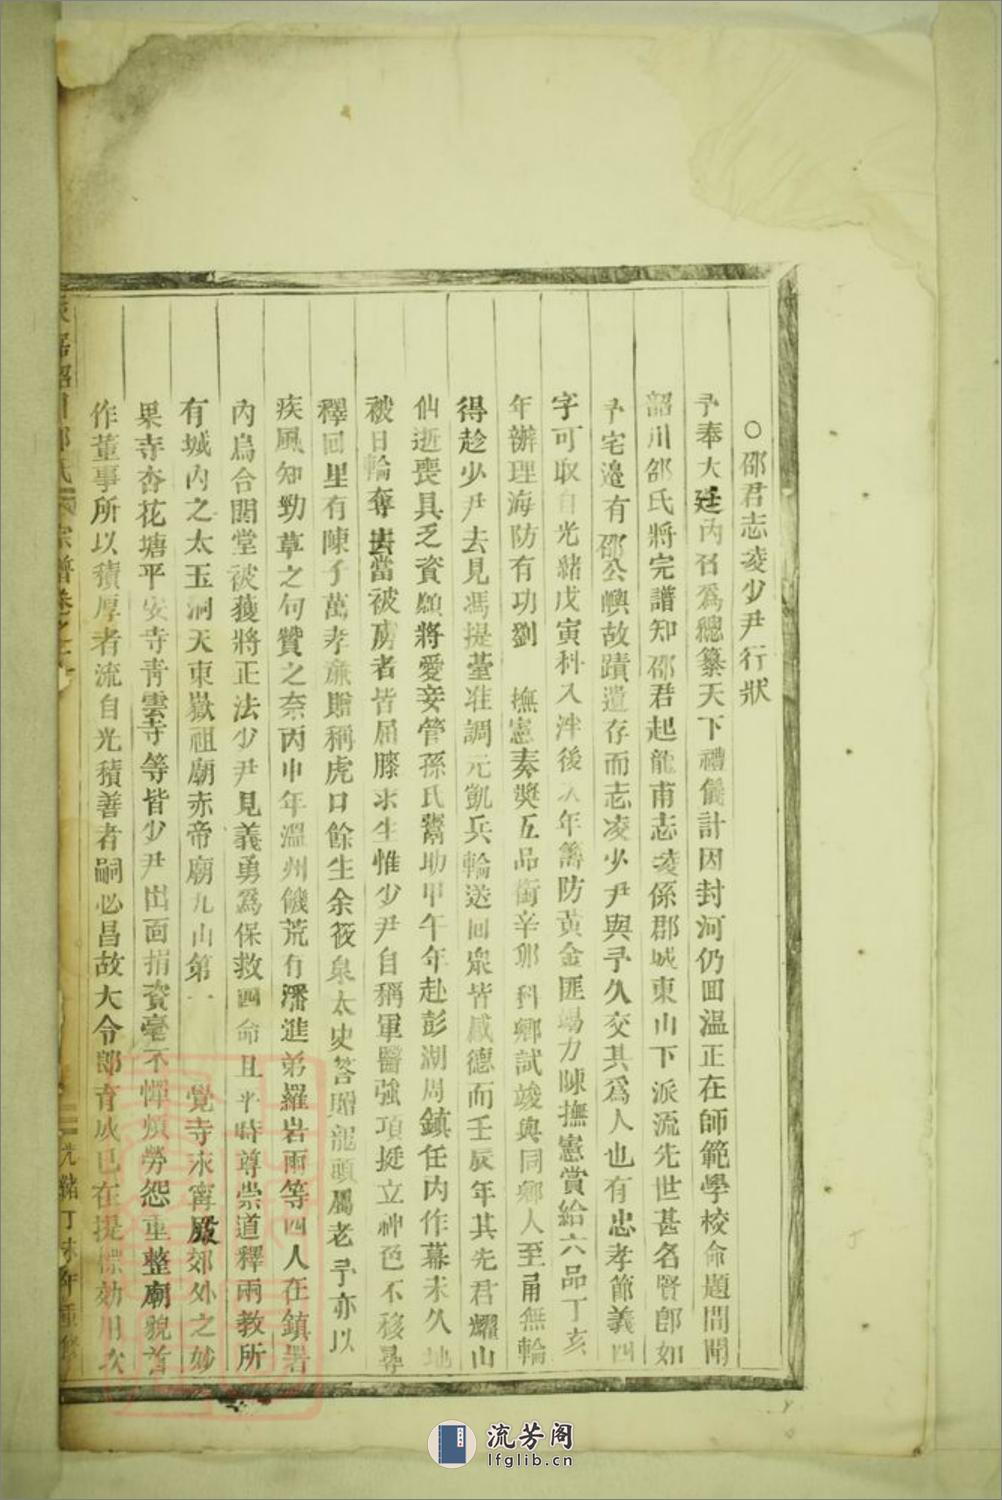 ○邵君志凌少尹行狀
予奉大廷內召爲總纂天下禮儀計因封河仍囬溫正在師範學校命題間聞
韶川邵氏將完譜知邵君起龍甫志凌係郡城東山下派流先世甚名賢卽如
予宅邊有邵公嶼故蹟遺存而志凌少尹與予久交其爲人也有忠孝節義四
字可取自光緒戊寅科入泮後八年籌防黃金匪場力陳撫憲賞給六品丁亥
年辦理海防有功劉 撫憲奏獎五品銜辛卯科鄉試竣與同鄉人至甬無輪
得趁少尹去見馮提臺准調元凱兵輪送囬衆皆感德而壬辰年其先君耀山
仙逝喪具乏資願將愛妾管孫氏幫助甲午年赴彭湖周鎮任內作幕未久地
被日輪奪去當被虜者皆屈膝求生惟少尹自稱軍醫強項挺立神色不移尋
釋回里有陳子萬孝亷贈稱虎口餘生余筱泉太史答贈龍頭屬老予亦以
疾風知勁草之句贊之奈丙申年溫州饑荒有潘進弟羅岩雨等四人在鎮署
內烏合鬧堂被獲將正法少尹見義勇爲保救四命且平時尊崇道釋兩敎所
有城內之太玉洞天東嶽祖廟赤帝廟九山第一 覺寺永寗殿郊外之妙
果寺杏花塘平安寺靑雲寺等皆少尹出面捐資毫不憚煩勞怨重整廟貌首
作董事所以積厚者流自光積善者嗣必昌故大令郎育成已在提標効用次
邵氏宗譜卷之 光緒丁未年重修